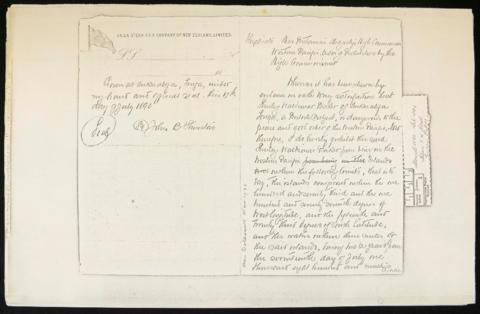 UNION STEAM SHIP COMPANY OF NEW ZEALAND, LIMITED.
S.S.
18
Given at Nukualofa, Tonga, under
my hand and official seal this 17th
day of July 1890
Seal
John B Thurston
Her Britannic Majesty's High Commissioner
Western Pacific,
High Commissioner
Whereas it has been shown by
evidence on oath to my satisfaction that
Shirley Waldemar Baker of Nukualofa
Tonga, a British Subject, is dangerous to the
peace and good order of the Western Pacific, Now
therefore, I do hereby prohibit the said
Shirley Waldemar Baker from being in the
Western Pacific Islands
within the following limits, that is to
say, the islands comprised within the one
hundred and seventy third and the one
hundred and seventy seventh degrees of
West longitude, and the fifteenth and
twenty third degrees of South latitude,
and the waters within three miles of
the said islands, during two years from
the seventeenth day of July one
thousand eight hundred and ninety